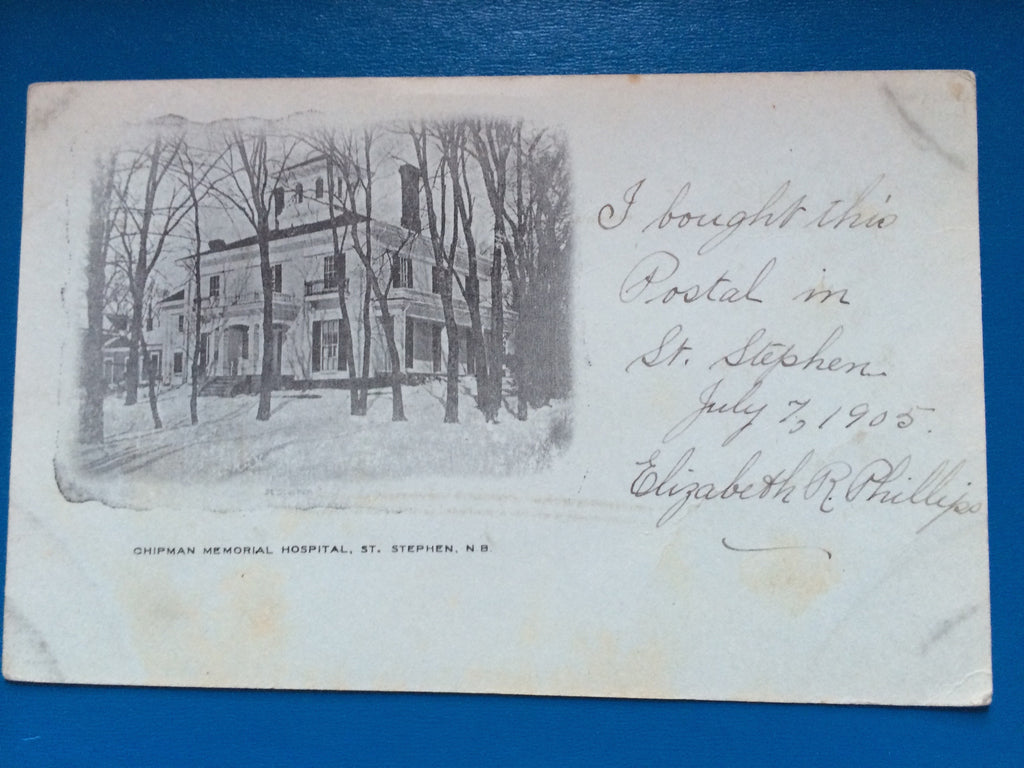 I bought this
Postal in
St. Stephen.
July 7, 1905.
Elizabeth R. Phillips
CHIPMAN MEMORIAL HOSPITAL, ST. STEPHEN, N.B.